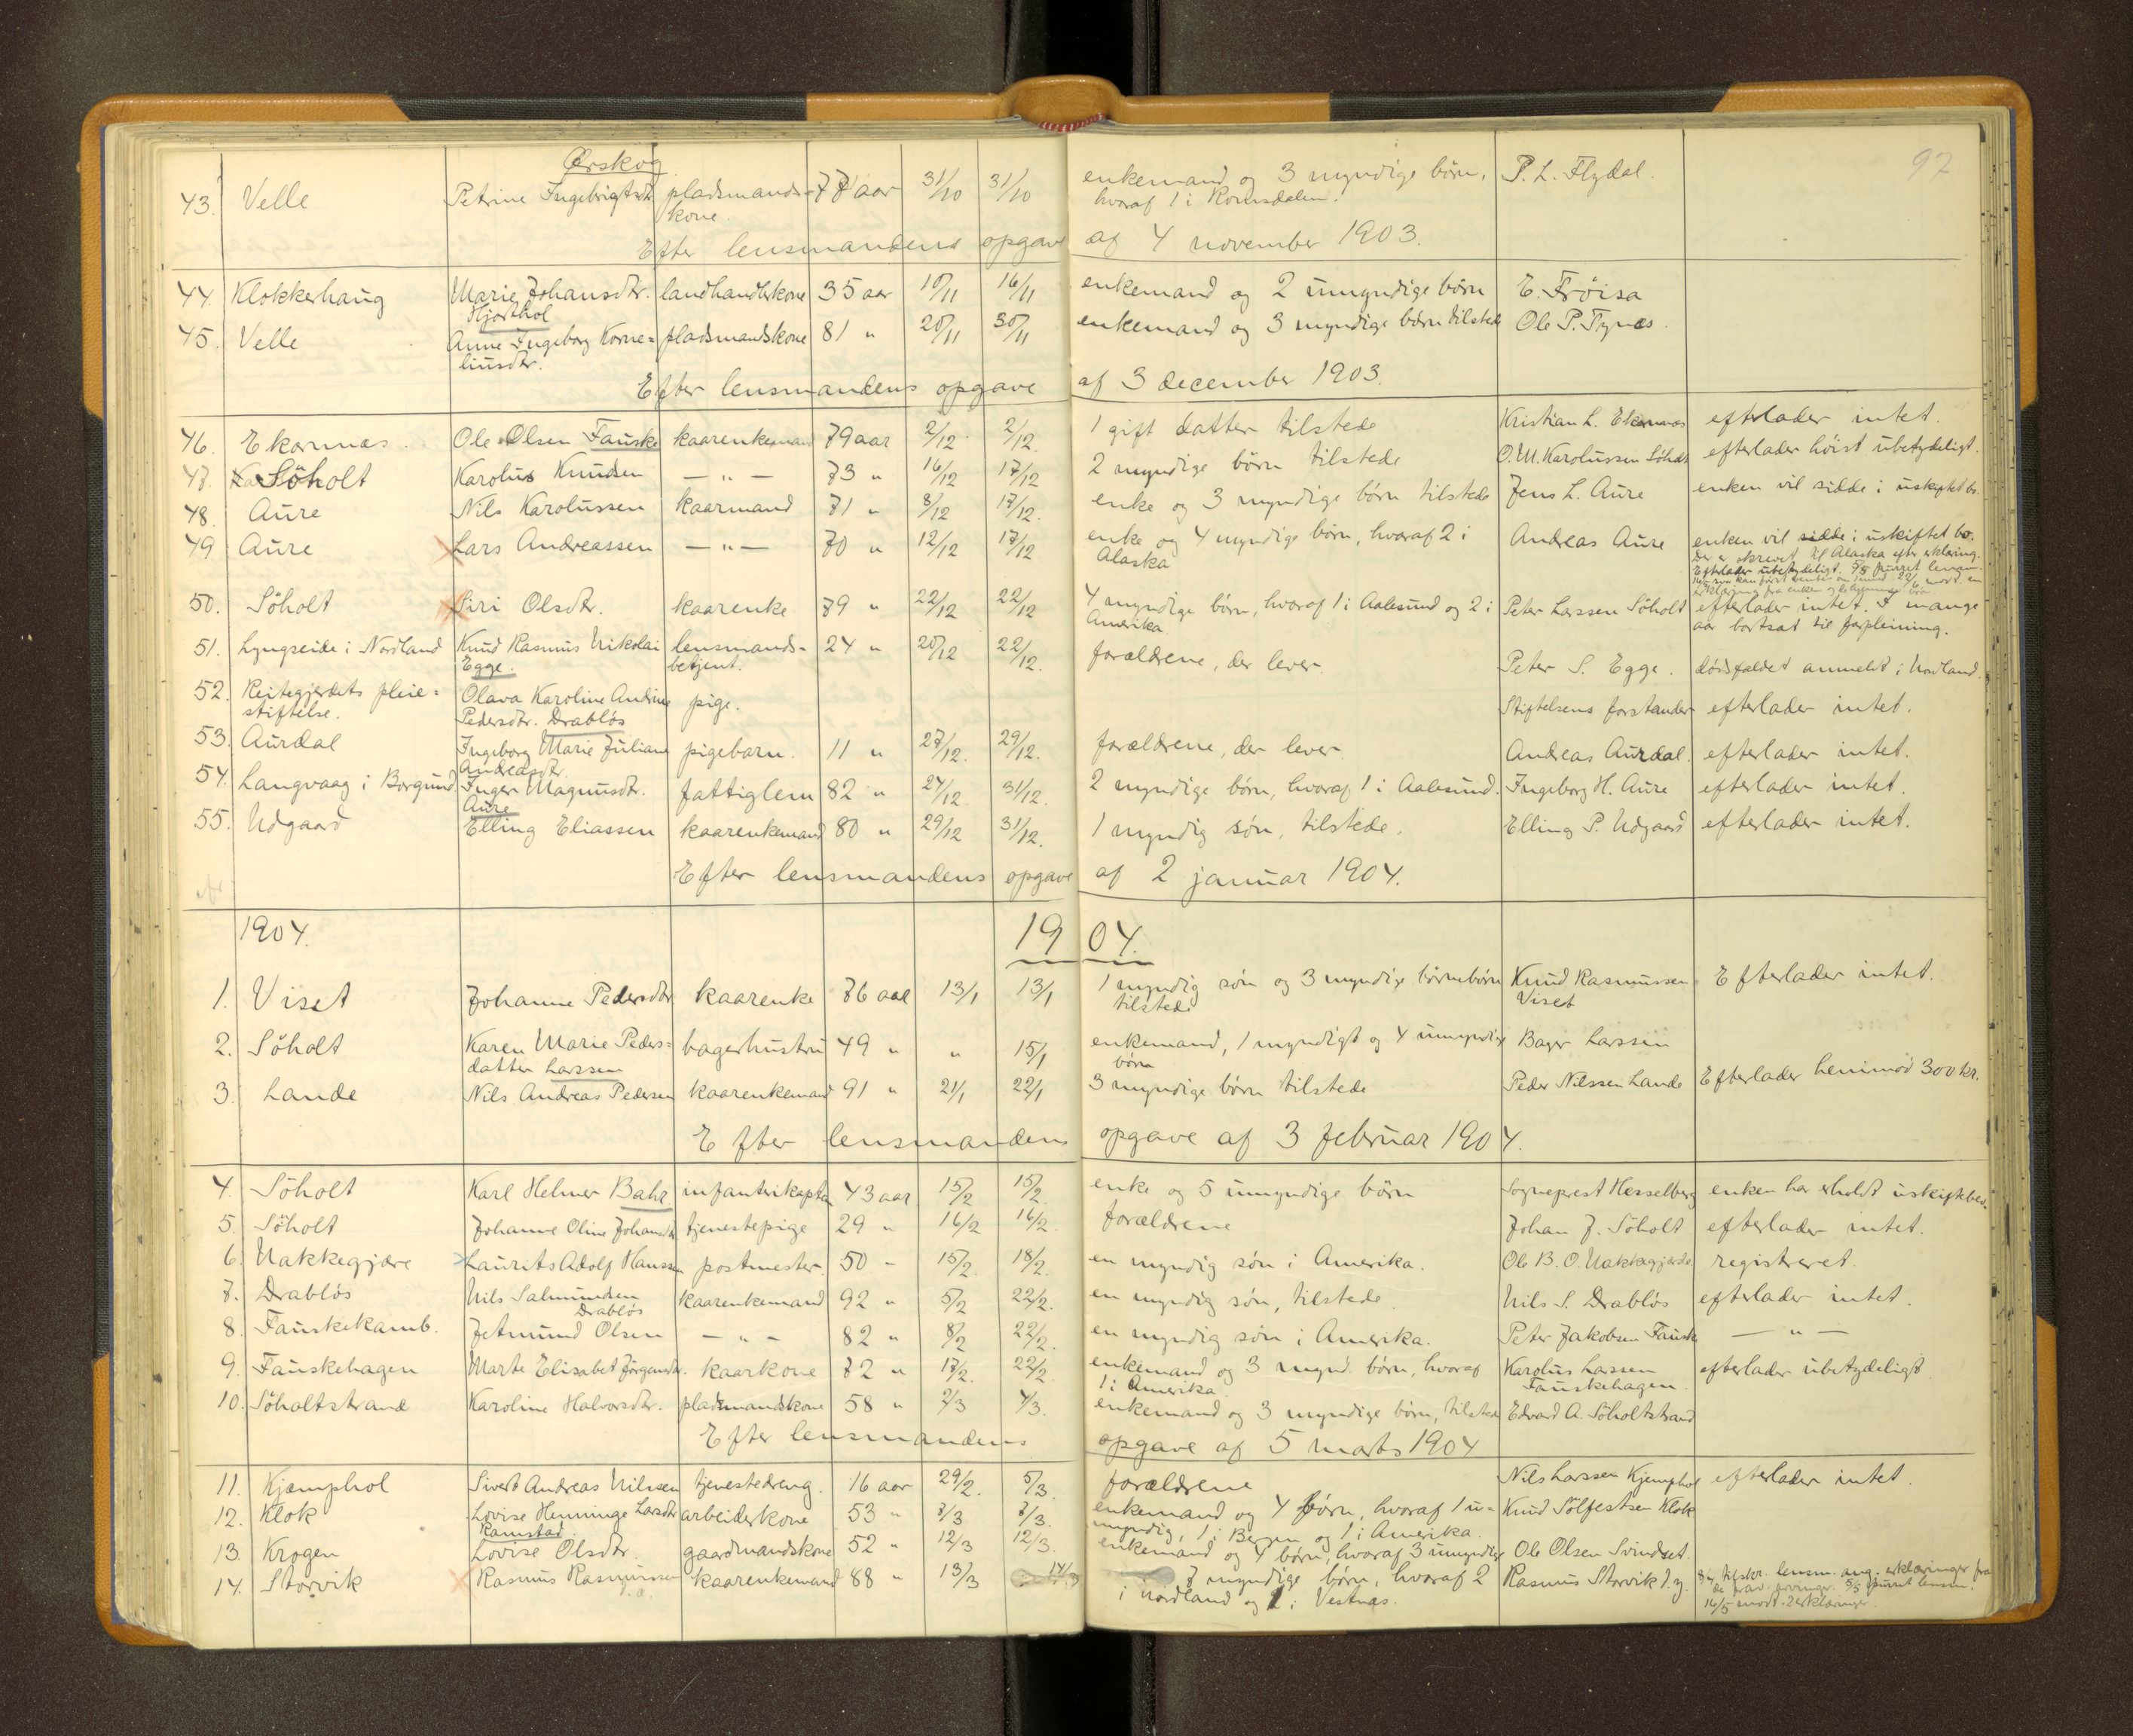 Ørskog 97
43. Velle Petrine Ingebrigtsdtr. pladsmands- 77 aar 31/10 31/10 enkemand og 3 myndige børn, P. L. Flydal.
kone. hvoraf 1 i Romsdalen.
Efter lensmandens opgave af 4 november 1903.
44. Klokkerhaug Marie Johansdtr. landhandlerkone 35 aar 10/11 16/11 enkemand og 2 umyndige børn E. Frøisa
Hjorthol
45. Velle Anne Ingeborg Korne= pladsmandskone 81 " 20/11 30/11 enkemand og 3 myndige børn tilstede Ole P. Tynes.
liusdtr.
Efter lensmandens opgave af 3 december 1903.
46. Ekornnæs. Ole Olsen Fauske kaarenkemand 79 aar 2/12 2/12 1 gift datter tilstede Kristian L. Ekornnæs efterlader intet.
47. Søholt Karolus Knudsen — " — 73 " 16/12 17/12 2 myndige børn tilstede O. M. Karolussen Søholt efterlader høist ubetydeligt.
48. Aure Nils Karolussen kaarmand 71 " 8/12 17/12. enke og 3 myndige børn tilstede Jens L. Aure enken vil sidde i uskiftet bo.
49 Aure Lars Andreassen — " — 70 " 12/12 17/12 enke og 4 myndige børn, hvoraf 2 i Andreas Aure enken vil sidde i uskiftet bo.
Alaska Der er skrevet til Alaska efter erklæring.
Efterlader ubetydeligt. 5/5 purret lensm.
50. Søholt Siri Olsdtr. kaarenke 79 " 22/12 22/12 4 myndige børn, hvoraf 1 i Aalesund og 2 i Peter Larssen Søholt efterlader intet. I mange
Amerika. aar bortsat til forpleining.
51. Lyngseide i Nordland Knud Rasmus Nikolai lensmands- 24 " 20/12 22/12. forældrene, der lever Peter S. Egge. dødsfaldet anmeldt i Nordland.
Egge. betjent.
52. Reitegjerdets pleie= Olava Karoline Andrine pige. Stiftelsens forstander efterlader intet.
stiftelse. Pedersdtr. Drabløs
53. Aurdal Ingeborg Marie Juliane pigebarn. 11 " 27/12. 29/12. forældrene, der lever Andreas Aurdal. efterlader intet.
Andreasdtr.
54. Langvaag i Borgund Inger Magnusdtr. fattiglem 82 " 24/12 31/12. 2 myndige børn, hvoraf 1 i Aalesund. Ingeborg H. Aure efterlader intet.
Aure
55. Udgaard Elling Eliassen kaarenkemand 80 " 29/12 31/12. 1 myndig søn, tilstede. Elling P. Udgaard efterlader intet.
Efter lensmandens opgave af 2 januar 1904.
1904. 1904.
1. Viset Johanne Pedersdtr kaarenke 76 aar 13/1 13/1 1 myndig søn og 3 myndige børnebørn Knud Rasmussen Efterlader intet.
tilstede Viset
2. Søholt Karen Marie Peders= bagerhustru 49 " " 15/1 enkemand, 1 myndigt og 4 umyndige Bager Larssen
datter Larssen børn
3. Lande Nils Andreas Pedersen kaarenkemand 91 " 21/1 22/1 3 myndige børn tilstede Peder Nilssen Lande Efterlader henimod 300 kr.
Efter lensmandens opgave af 3 februar 1904.
4. Søholt Karl Helmer Bahr infanterikaptein 43 aar 15/2 15/2. enke og 5 umyndige børn Sogneprest Hesselberg enken har erholdt uskiftebev.
5. Søholt Johanne Oline Johansdtr tjenestepige 29 " 16/2 16/2. forældrene Johan J. Søholt efterlader intet.
6. Nakkegjære Laurits Adolf Hanssen postmester. 50 " 15/2. 18/2. en myndig søn i Amerika. Ole B. O. Nakkegjærde registreret.
7. Drabløs Nils Salmundsen kaarenkemand 92 " 5/2 22/2. en myndig søn, tilstede. Nils S. Drabløs efterlader intet.
Drabløs
8. Fauskekamb. Jetmund Olsen — " — 82 " 8/2 22/2. en myndig søn i Amerika. Peter Jakobsen Fauske — " —
9. Fauskehagen Marte Elisabet Jørgensdtr. kaarkone 72 " 17/2. 22/2. enkemand og 3 mynd. børn, hvoraf Karolus Larssen efterlader ubetydeligt
1 i Amerika Fauskehagen.
10. Søholtstrand Karoline Halvorsdtr. pladsmandskone 58 " 2/3 4/3. enkemand og 3 myndige børn, tilstede Edvard A. Søholtstrand
Efter lensmandens opgave af 5 marts 1904
11. Kjæmphol Sivert Andreas Nilssen tjenestedreng. 16 aar 29/2. 5/3. forældrene Nils Larssen Kjemphol efterlader intet.
12. Klok Lovise Henninge Larsdtr arbeiderkone 53 " 7/3 7/3. enkemand og 4 børn, hvoraf 1 u= Knud Sølfestsen Klok
Ramstad. myndig, 1 i Bergen og 1 i Amerika.
13. Krogen Lovise Olsdtr. gaardmandskone 52 " 12/3 12/3. enkemand og 4 børn, hvoraf 3 umyndige Ole Olsen Svindset.
14. Storvik Rasmus Rasmussen kaarenkemand 88 " 13/3 14/3 7 myndige børn, hvoraf 2 Rasmus Storvik d.y. tilskr. lensm. ang. erklæringer fra
i Nordland og 1 i Vestnæs. 5/5 purret lensm.
16/5 modt. 2 erklæringer.